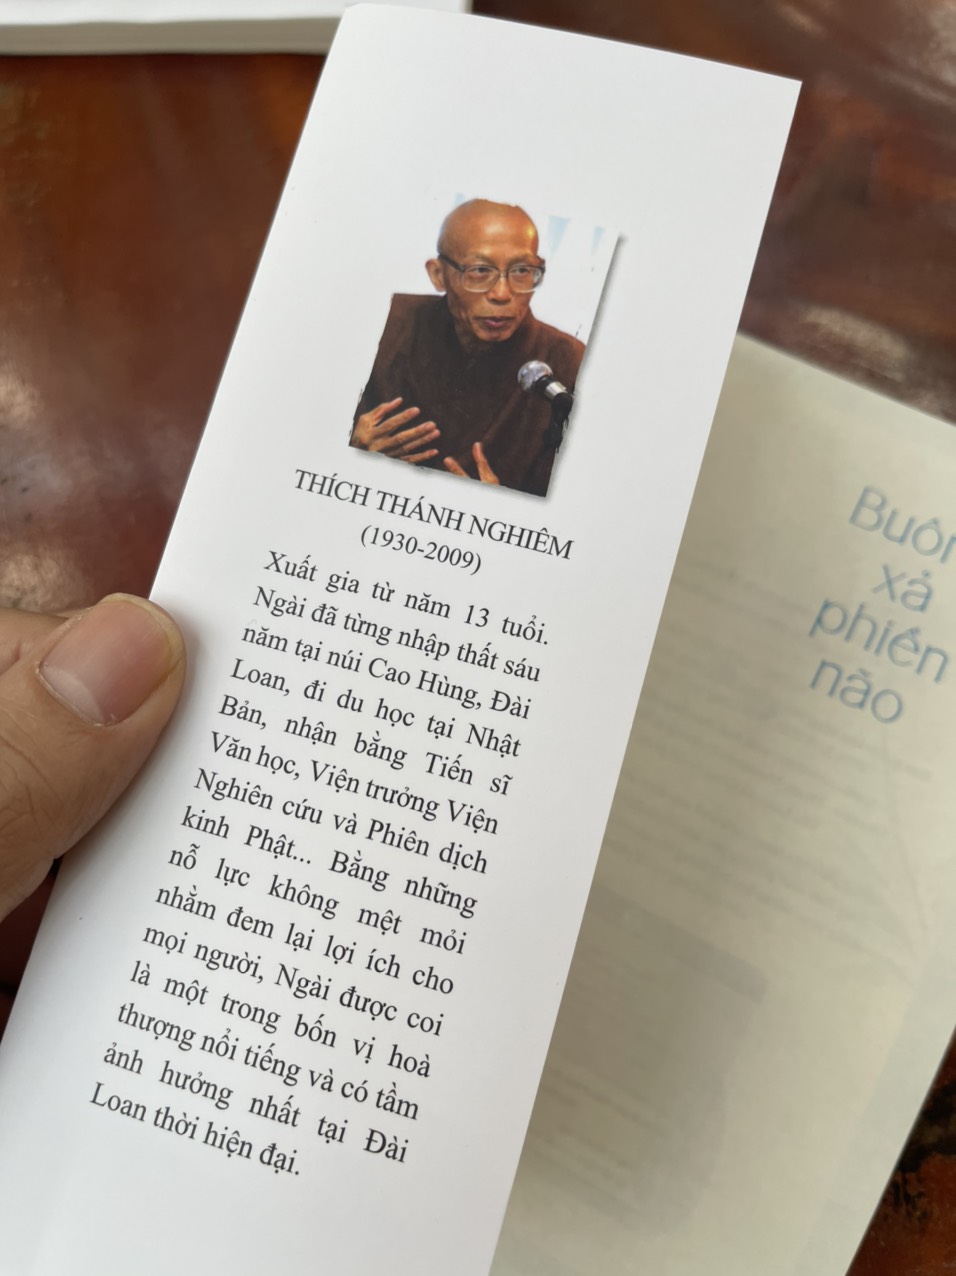 THÍCH THÁNH NGHIÊM
(1930-2009)
Xuất gia từ năm 13 tuổi.
Ngài đã từng nhập thất sáu
năm tại núi Cao Hùng, Đài
Loan, đi du học tại Nhật
Bản, nhận bằng Tiến sĩ
Văn học, Viện trưởng Viện
Nghiên cứu và Phiên dịch
kinh Phật... Bằng những
nỗ lực không mệt mỏi
nhằm đem lại lợi ích cho
mọi người, Ngài được coi
là một trong bốn vị hoà
thượng nổi tiếng và có tầm
ảnh hưởng nhất tại Đài
Loan thời hiện đại.
xả
phiền
não